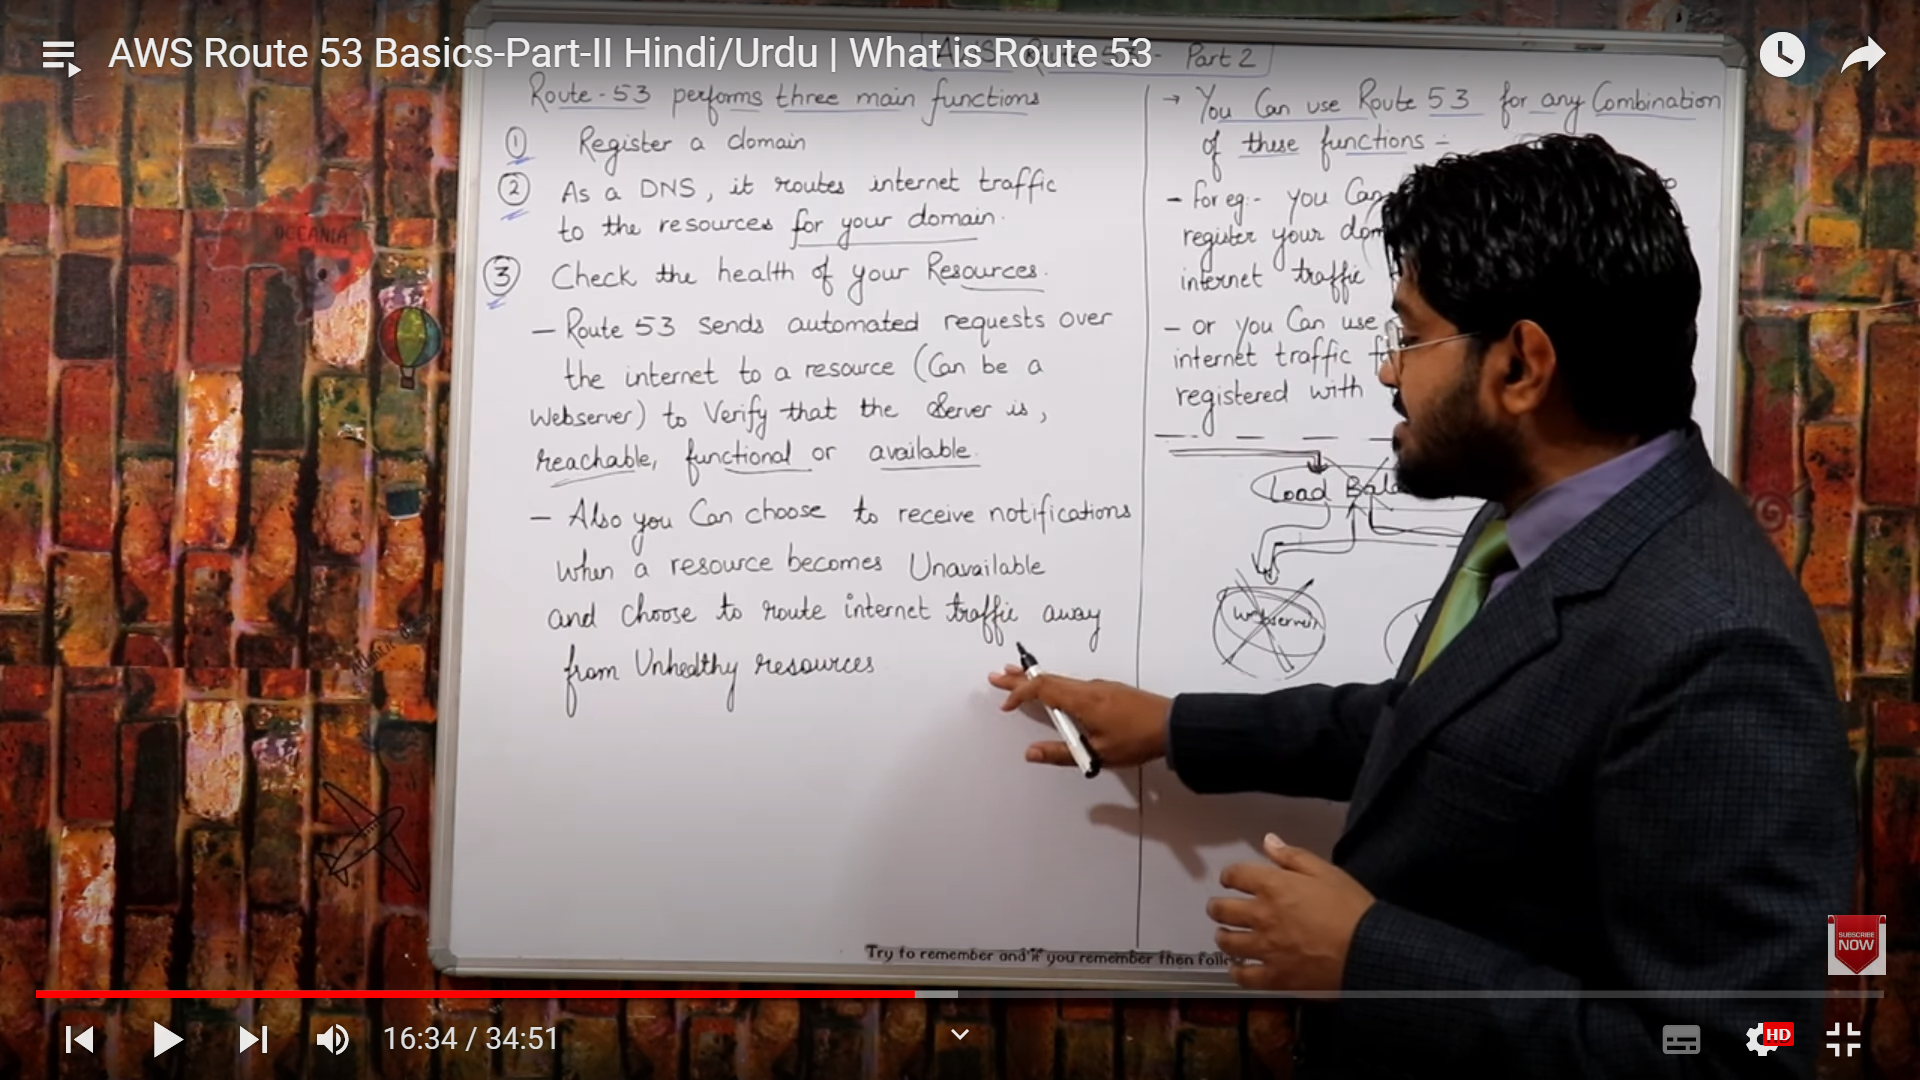 AWS Route 53 Basics-Part-II Hindi/Urdu | What is Route 53
AWS Route 53 - Part 2
Route-53 performs three main functions
① Register a domain
② As a DNS, it routes internet traffic
to the resources for your domain.
③ Check the health of your Resources.
- Route 53 sends automated requests over
the internet to a resource (Can be a
webserver) to Verify that the Server is,
reachable, functional or available.
- Also you Can choose to receive notifications
when a resource becomes Unavailable
and choose to route internet traffic away
from Unhealthy resources
→ You Can use Route 53 for any Combination
of these functions :-
- for eg:- you Can
register your
internet traffic
- or you Can use
internet traffic
registered with
Load
Webserver
OCEANIA
Try to remember and if you remember then
SUBSCRIBE
NOW
16:34 / 34:51
HD